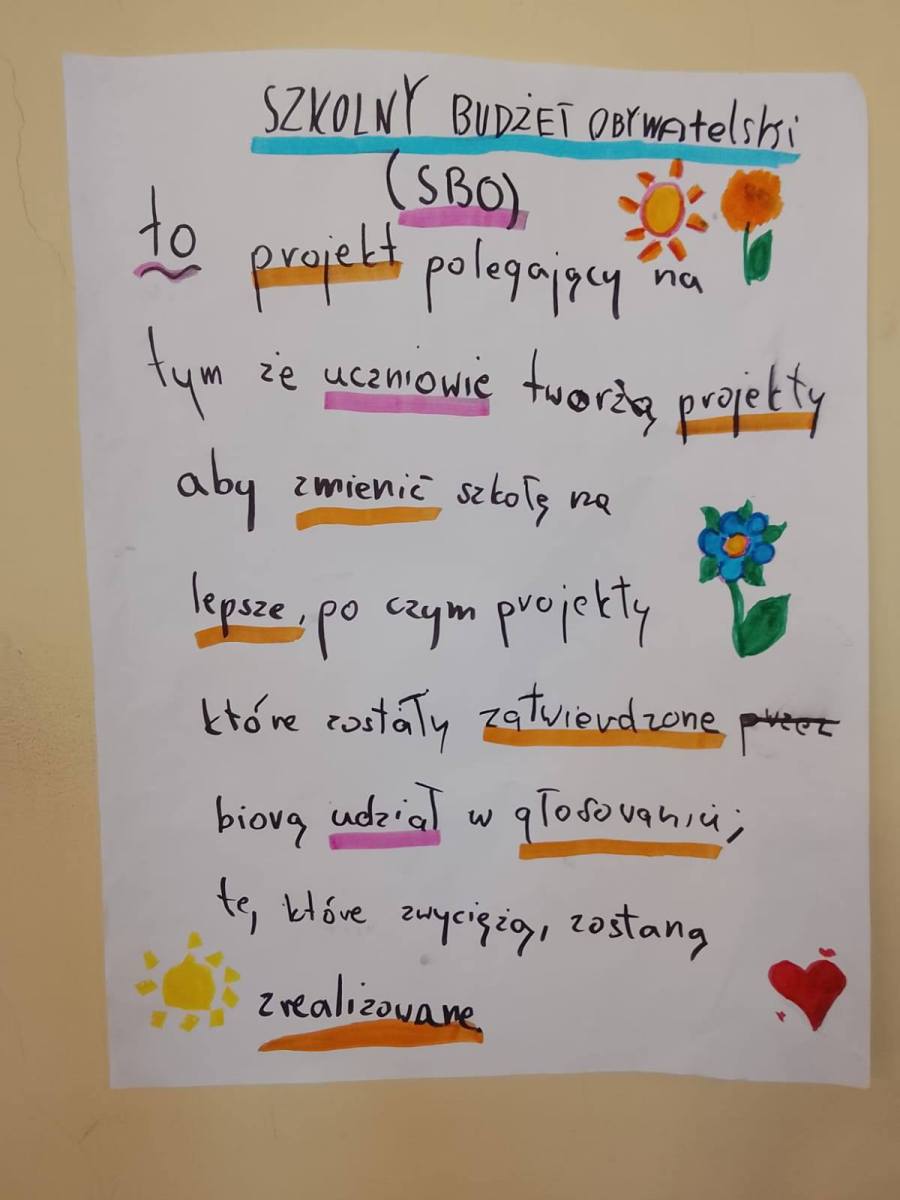 SZKOLNY BUDŻET OBYWATELSKI
(SBO)
to projekt polegający na
tym że uczniowie tworżą projekty
aby zmienić szkołę na
lepsze, po czym projekty
które zostały zatwierdzone przez
biorą udział w głosowaniu;
te, które zwyciężą, zostaną
zrealizowane